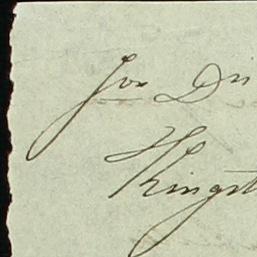 for Dri
Kingst